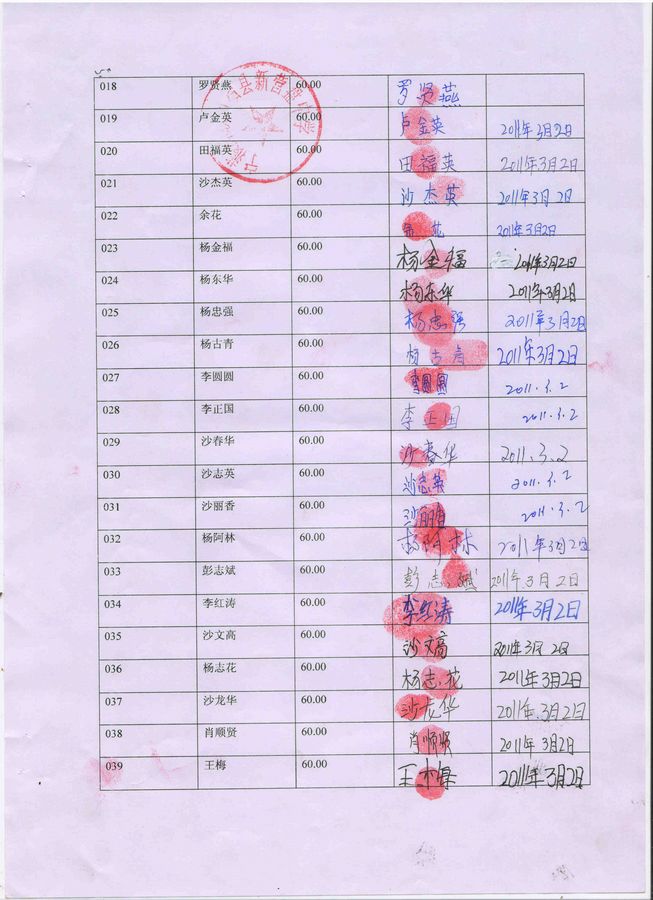 018 罗贤燕 60.00 罗贤燕
019 卢金英 60.00 卢金英 2011年3月2日
020 田福英 60.00 田福英 2011年3月2日
021 沙杰英 60.00 沙杰英 2011年3月2日
022 余花 60.00 余花 2011年3月2日
023 杨金福 60.00 杨金福 2011年3月2日
024 杨东华 60.00 杨东华 2011年3月2日
025 杨忠强 60.00 杨忠强 2011年3月2日
026 杨古青 60.00 杨古青 2011年3月2日
027 李圆圆 60.00 李圆圆 2011.3.2
028 李正国 60.00 李正国 2011.3.2
029 沙春华 60.00 沙春华 2011.3.2
030 沙志英 60.00 沙志英 2011.3.2
031 沙丽香 60.00 沙丽香 2011.3.2
032 杨阿林 60.00 杨阿林 2011年3月2日
033 彭志斌 60.00 彭志斌 2011年3月2日
034 李红涛 60.00 李红涛 2011年3月2日
035 沙文高 60.00 沙文高 2011年3月2日
036 杨志花 60.00 杨志花 2011年3月2日
037 沙龙华 60.00 沙龙华 2011年3月2日
038 肖顺贤 60.00 肖顺贤 2011年3月2日
039 王梅 60.00 王梅 2011年3月2日